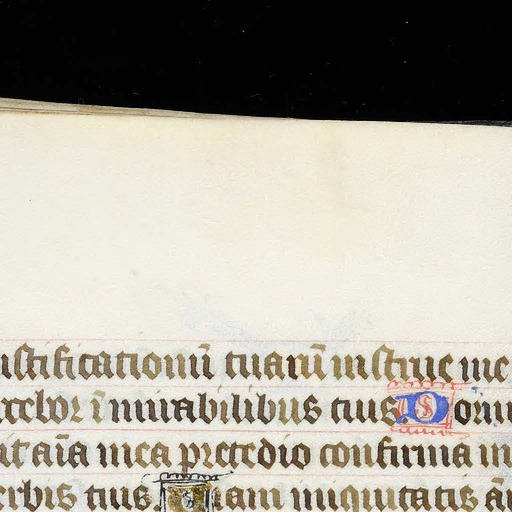 ustificationũ tuarũ instrue me
rcebor ĩ mirabilibus tuis. Dormi
it aĩa mea pre tedio confirma m
erbis tuis. Uiam iniquitatis a